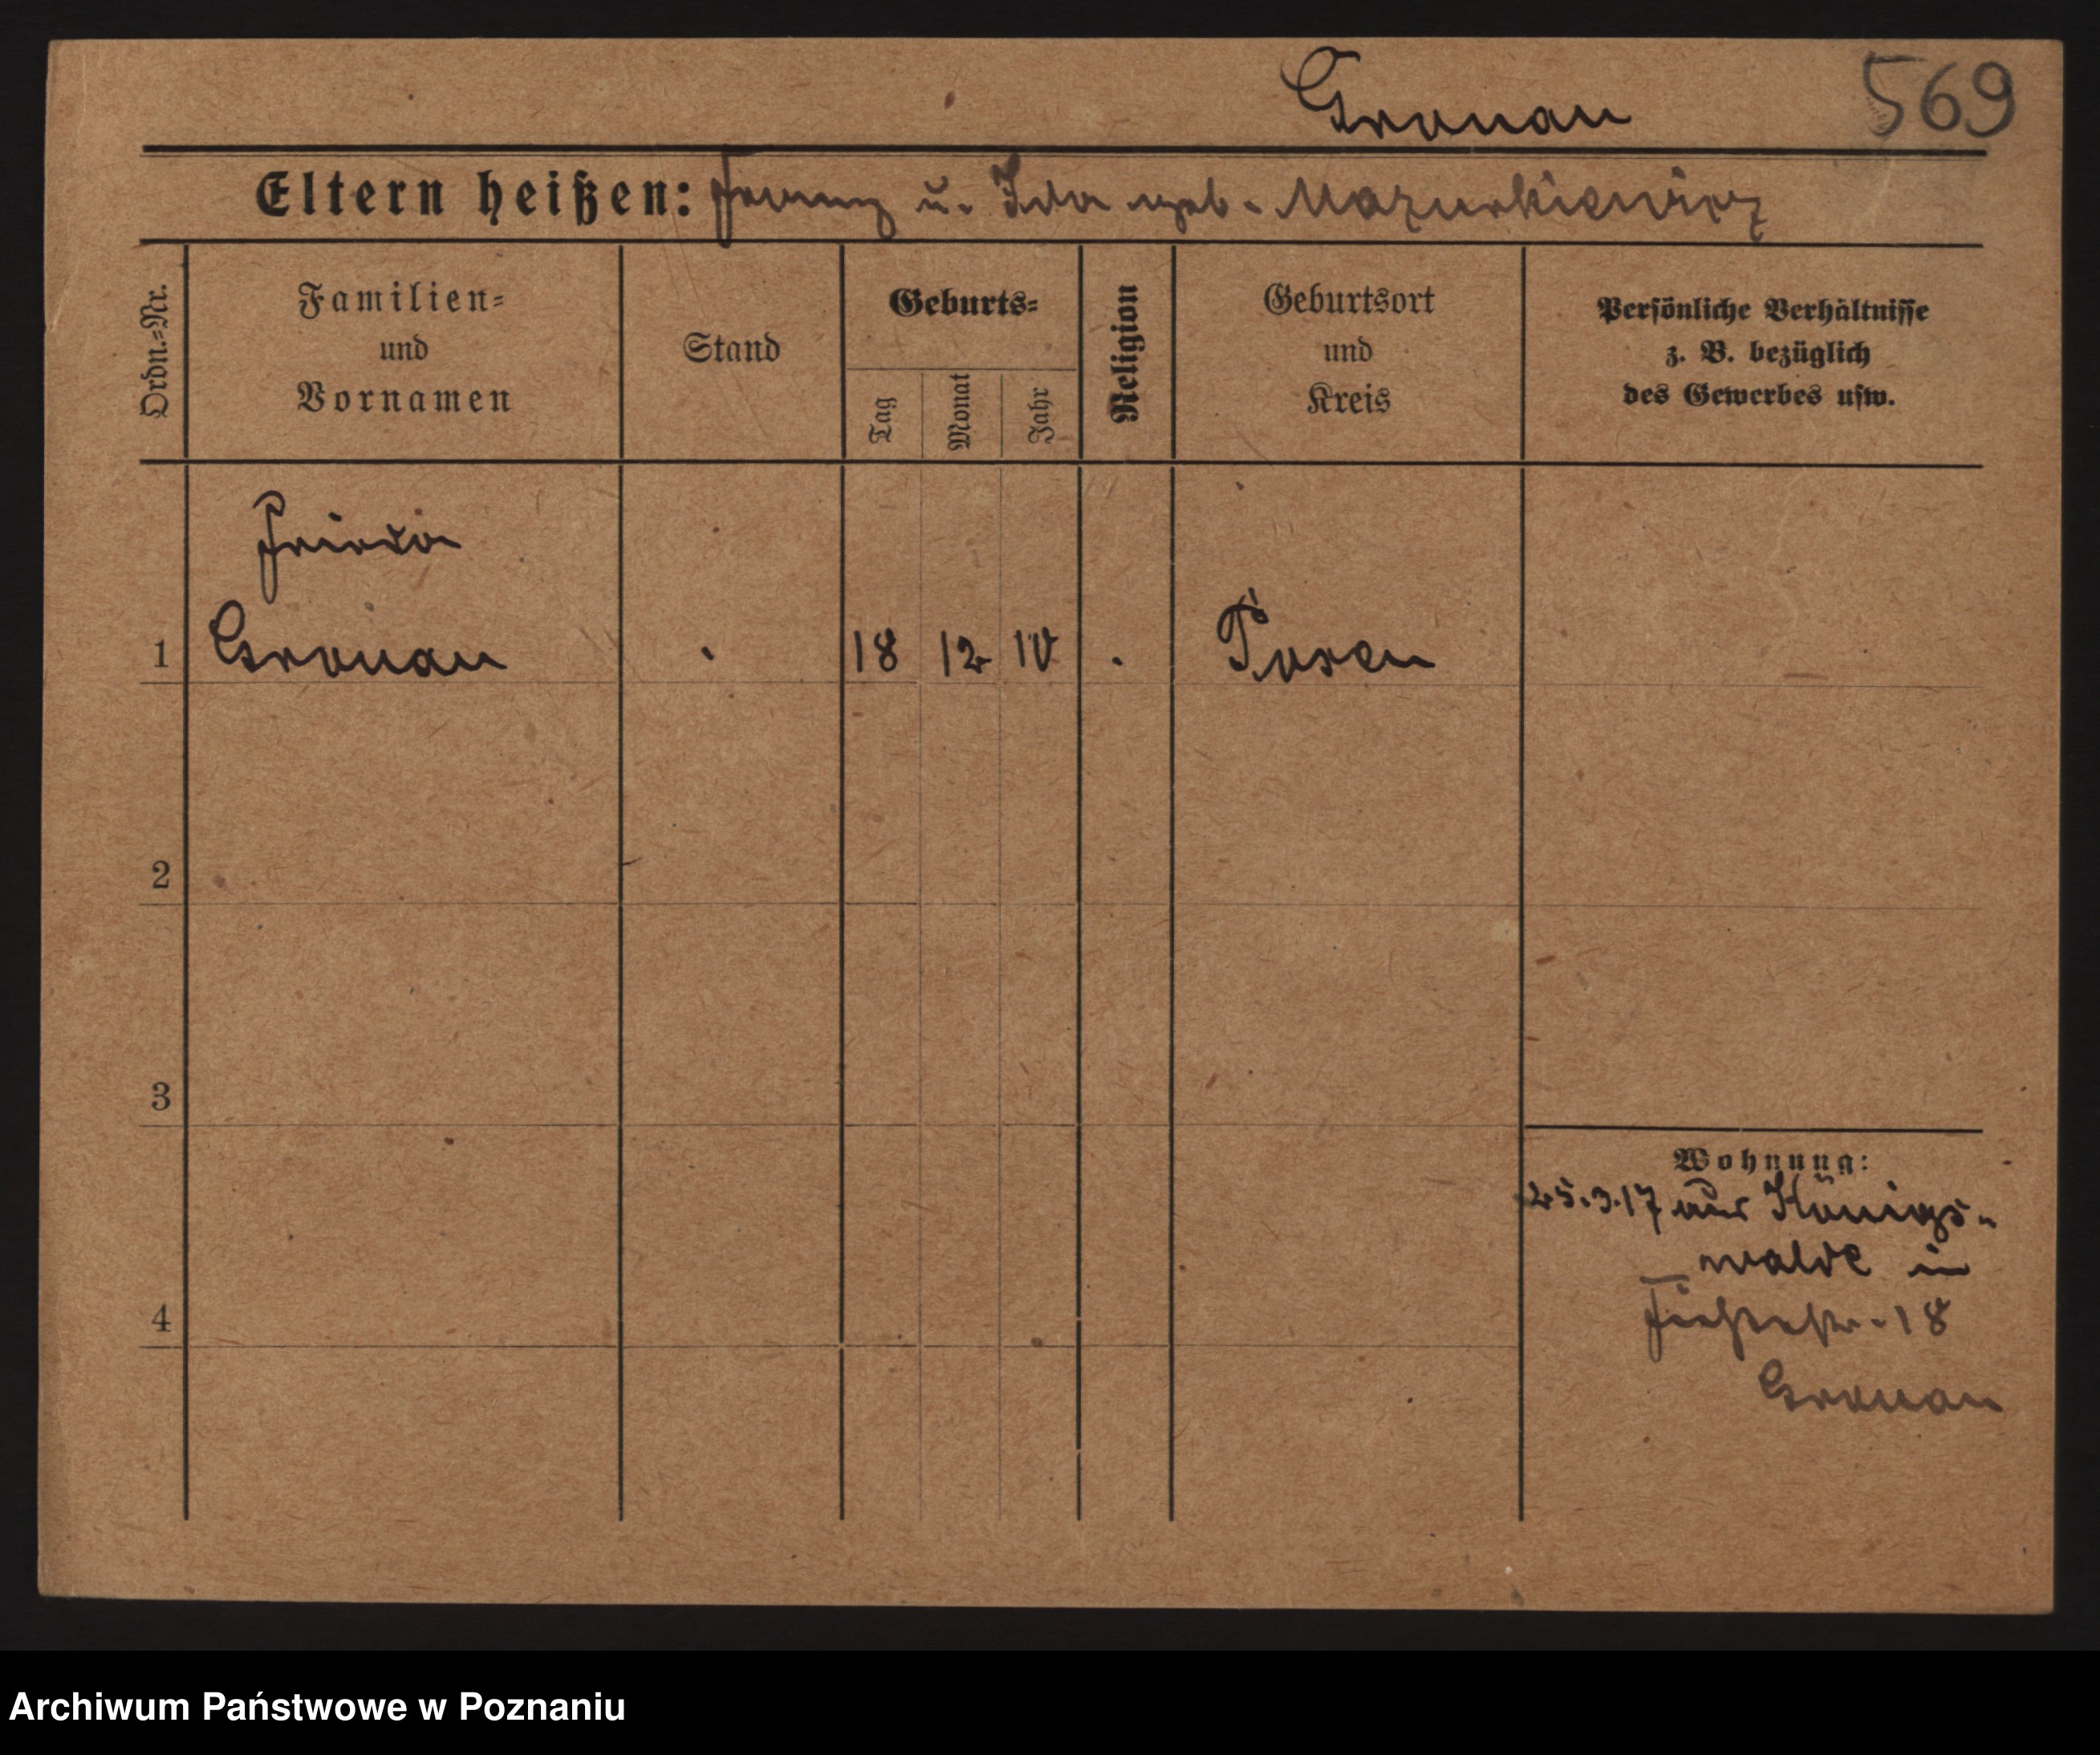 Gronau 569
Eltern heißen: Franz u. Ida geb. Mazurkiewicz
Ordn.=Nr.
Familien=
und
Vornamen
Stand
Geburts=
Tag
Monat
Jahr
Religion
Geburtsort
und
Kreis
Persönliche Verhältnisse
z. B. bezüglich
des Gewerbes usw.
Frieda
1 Gronau . 18 12 10 . Posen
2
3
Wohnung:
25.3.17 aus Königs-
walde in
4 Fichtestr. 18
Gronau
Archiwum Państwowe w Poznaniu